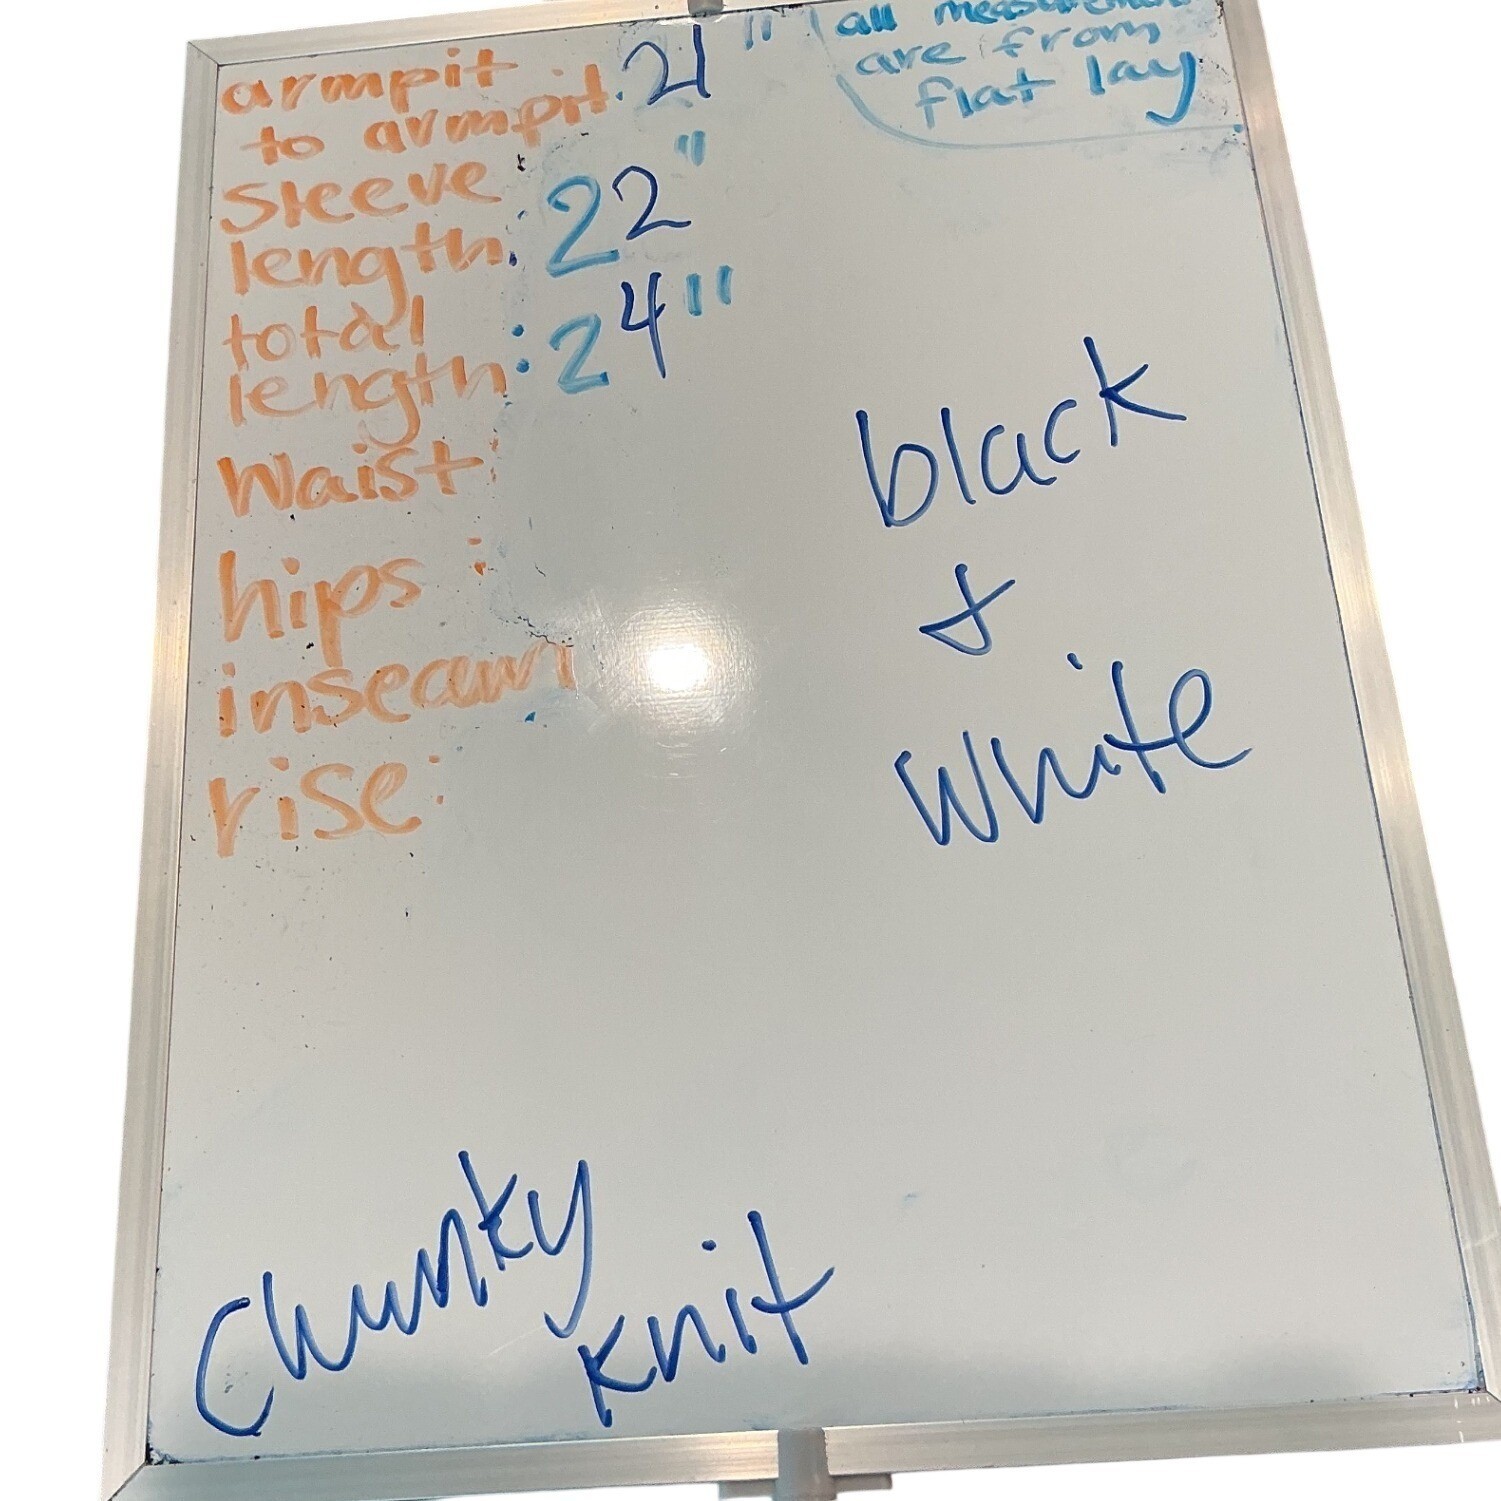 armpit
to armpit: 21"
sleeve
length: 22"
total
length: 24"
waist:
hips:
inseam
rise:
all measurements
are from
flat lay
black
&
white
Chunky
knit